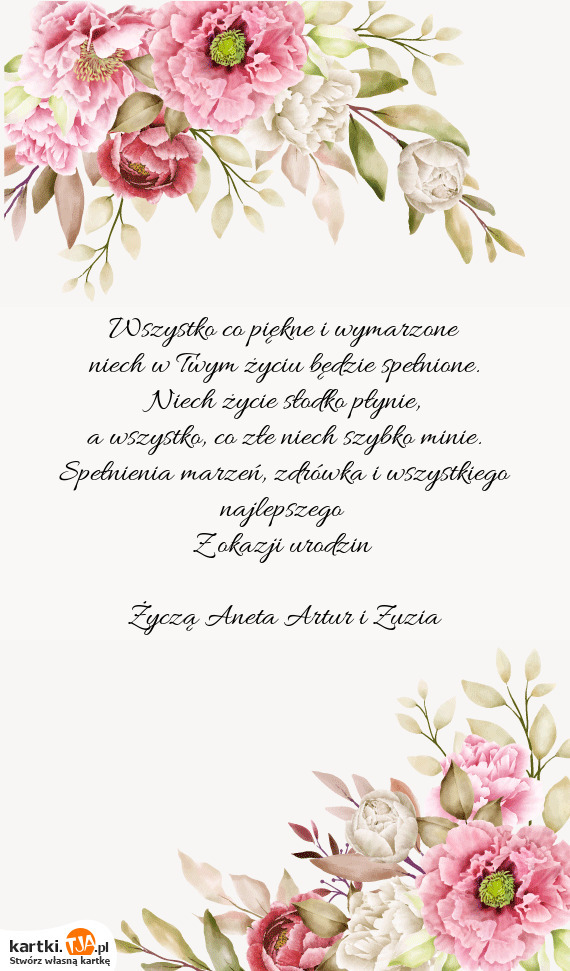 Wszystko co piękne i wymarzone
niech w Twym życiu będzie spełnione.
Niech życie słodko płynie,
a wszystko, co złe niech szybko minie.
Spełnienia marzeń, zdrówka i wszystkiego
najlepszego
Z okazji urodzin
Życzą Aneta Artur i Zuzia
kartki.TJA.pl
Stwórz własną kartkę